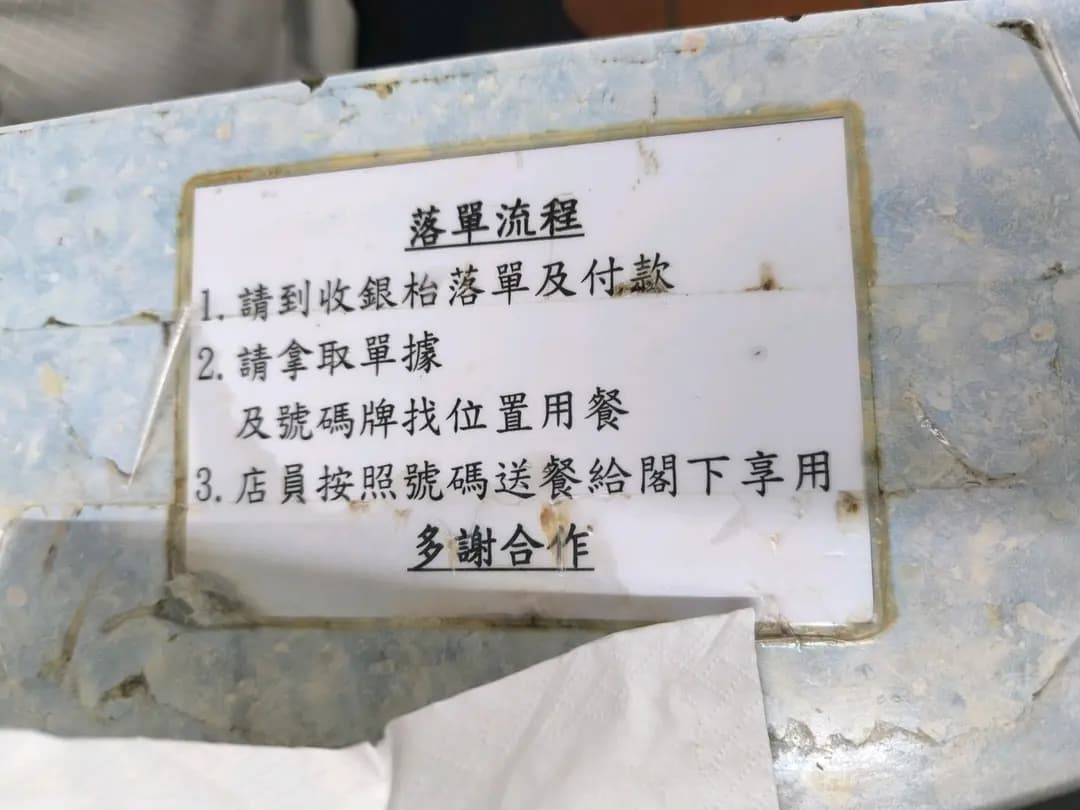 落單流程
1. 請到收銀枱落單及付款
2. 請拿取單據
及號碼牌找位置用餐
3. 店員按照號碼送餐給閣下享用
多謝合作